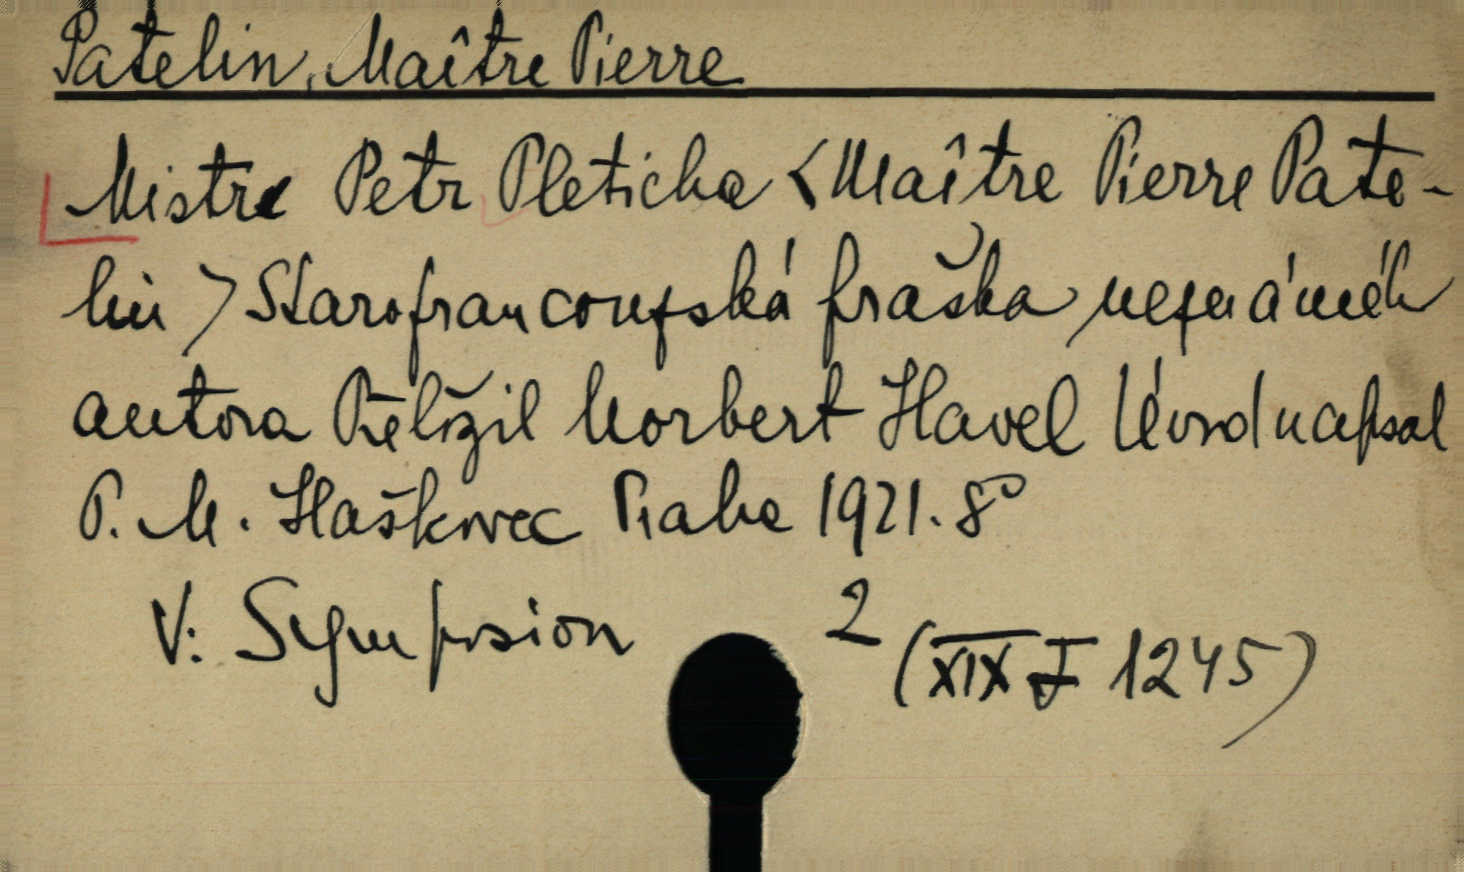 Patelin, Maître Pierre
Mistr Petr Pleticha <Maître Pierre Pate-
lin> Starofrancouzská fraška neznáméh
autora Přeložil Norbert Havel Úvod napsal
P. M. Haškovec Praha 1921. 8°
V: Symposion 2 (XIX J 1245)